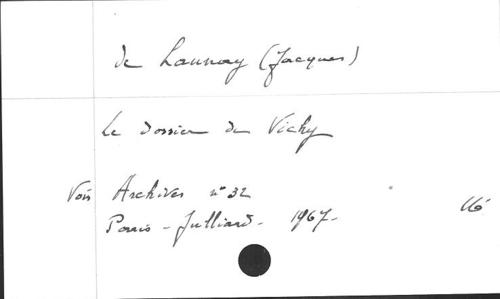 de Launay (Jacques)
Le dossier de Vichy
Voir Archives n° 32
Paris - Julliard - 1967 -